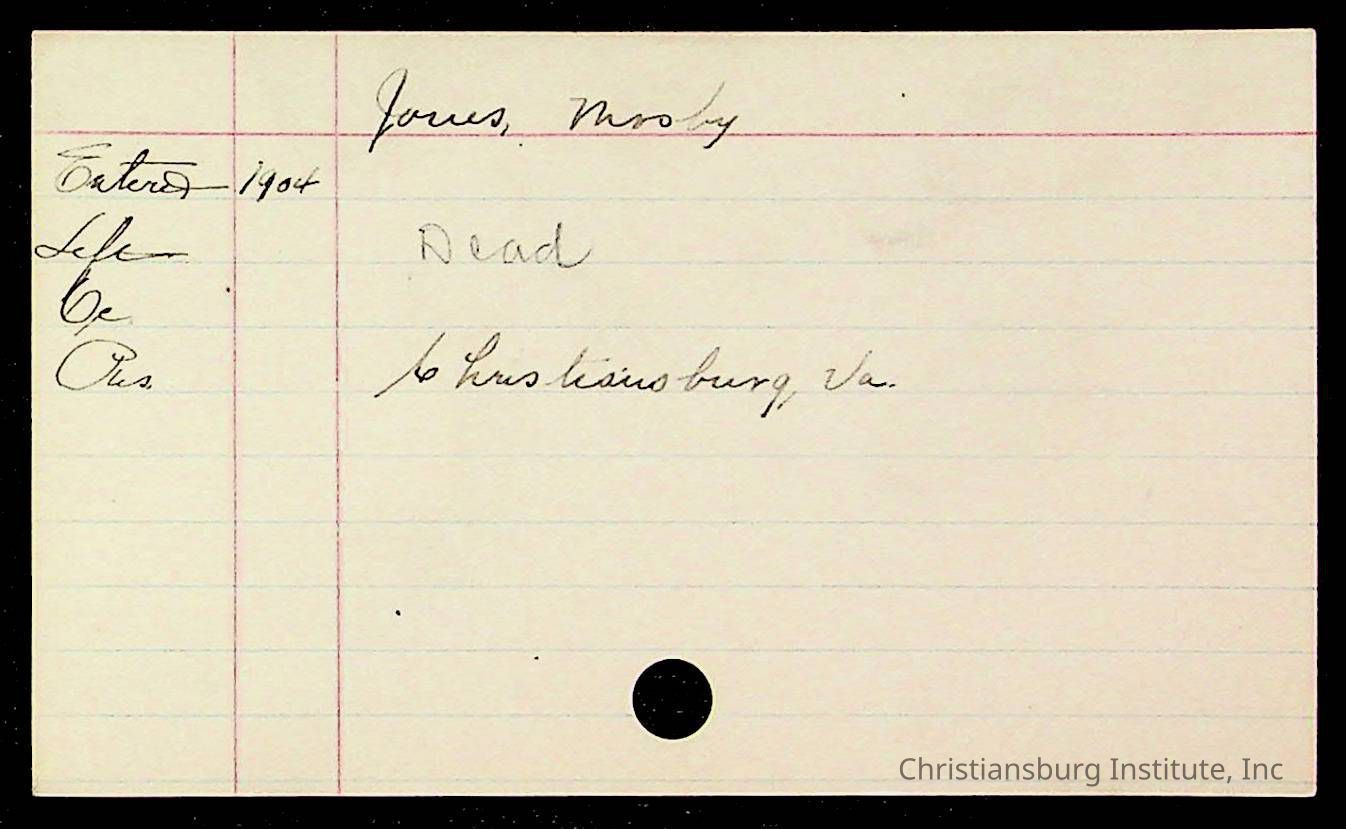 Jones, Mosby
Entered 1904
Left Dead
Oc
Res. Christiansburg, Va.
Christiansburg Institute, Inc